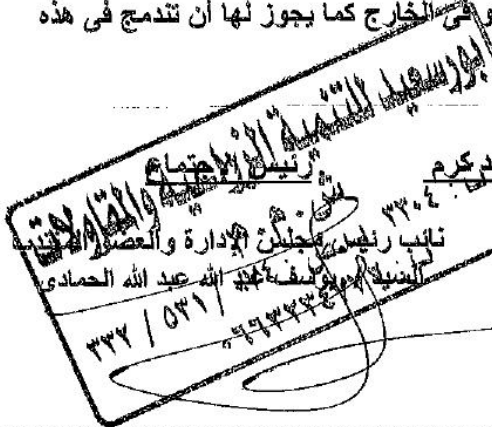 و فى الخارج كما يجوز لها أن تندمج فى هذه
بورسعيد للتنمية الزراعية والمقاولات
دكرم
رئيس الاجتماع
س.ت
٣٣٠٤
نائب رئيس مجلس الإدارة والعضو المنتدب
السيد / يوسف عبد الله عبد الله الحمادى
٣٣٢ / ٥٣١ /